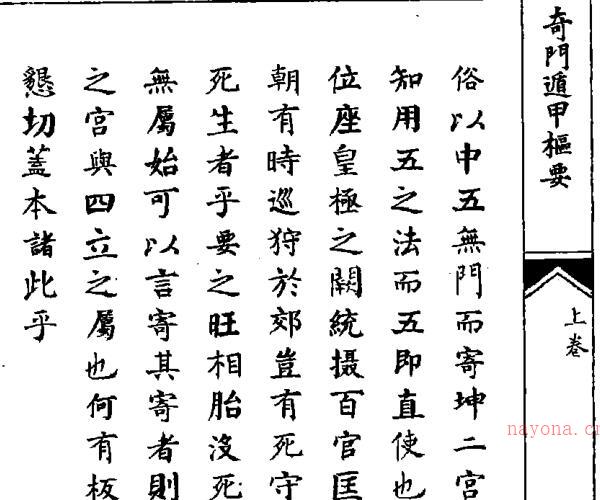 奇門遁甲樞要
上卷
俗以中五無門而寄坤二宮
知用五之法而五即直使也
位座皇極之闕統攝百官匡
朝有時巡狩於郊豈有死守
死生者乎要之旺相胎沒死
無屬始可以言寄其寄者則
之宮與四立之屬也何有板
懇切蓋本諸此乎
nayona.cn